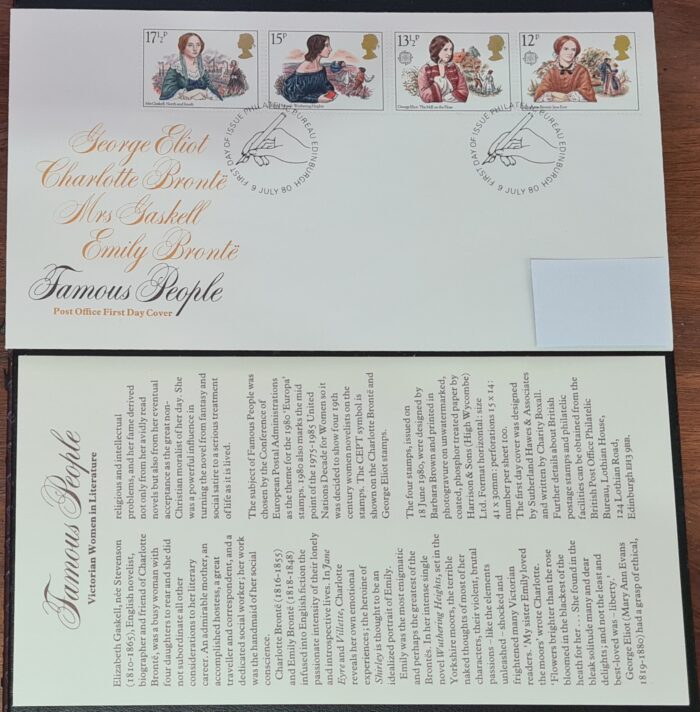 17½P
15P
13½P
12P
Mrs Gaskell: North and South
Wuthering Heights
George Eliot: The Mill on the Floss
Brontë: Jane Eyre
FIRST DAY OF ISSUE PHILATELIC BUREAU EDINBURGH
9 JULY 80
FIRST DAY OF ISSUE PHILATELIC BUREAU EDINBURGH
9 JULY 80
George Eliot
Charlotte Brontë
Mrs Gaskell
Emily Brontë
Famous People
Post Office First Day Cover
Famous People
Victorian Women in Literature
Elizabeth Gaskell, née Stevenson
(1810-1865), English novelist,
biographer and friend of Charlotte
Brontë, was a busy woman with
four daughters to rear and she did
not subordinate all other
considerations to her literary
career. An admirable mother, an
accomplished hostess, a great
traveller and correspondent, and a
dedicated social worker; her work
was the handmaid of her social
conscience.
Charlotte Brontë (1816-1855)
and Emily Brontë (1818-1848)
infused into English fiction the
passionate intensity of their lonely
and introspective lives. In Jane
Eyre and Villette, Charlotte
reveals her own emotional
experiences; the heroine of
Shirley is thought to be an
idealized portrait of Emily.
Emily was the most enigmatic
and perhaps the greatest of the
Brontës. In her intense single
novel Wuthering Heights, set in the
Yorkshire moors, the terrible
naked thoughts of most of her
characters, their violent, brutal
passions – like the elements
unleashed – shocked and
frightened many Victorian
readers. 'My sister Emily loved
the moors' wrote Charlotte.
'Flowers brighter than the rose
bloomed in the blackest of the
heath for her ... She found in the
bleak solitude many and dear
delights; and not the least and
best-loved was – liberty.'
George Eliot (Mary Ann Evans
1819-1880) had a grasp of ethical,
religious and intellectual
problems, and her fame derived
not only from her avidly read
novels but also from her eventual
acceptance as the great non-
Christian moralist of her day. She
was a powerful influence in
turning the novel from fantasy and
social satire to a serious treatment
of life as it is lived.
The subject of Famous People was
chosen by the Conference of
European Postal Administrations
as the theme for the 1980 'Europa'
stamps. 1980 also marks the mid
point of the 1975-1985 United
Nations Decade for Women so it
was decided to show four 19th
century women novelists on the
stamps. The CEPT symbol is
shown on the Charlotte Brontë and
George Eliot stamps.
The four stamps, issued on
18 June 1980, were designed by
Barbara Brown and printed in
photogravure on unwatermarked,
coated, phosphor treated paper by
Harrison & Sons (High Wycombe)
Ltd. Format horizontal: size
41 x 30mm: perforations 15 x 14:
number per sheet 100.
The first day cover was designed
by Sutherland Hawes & Associates
and written by Charity Boxall.
Further details about British
postage stamps and philatelic
facilities can be obtained from the
British Post Office Philatelic
Bureau, Lothian House,
124 Lothian Road,
Edinburgh EH3 9BB.